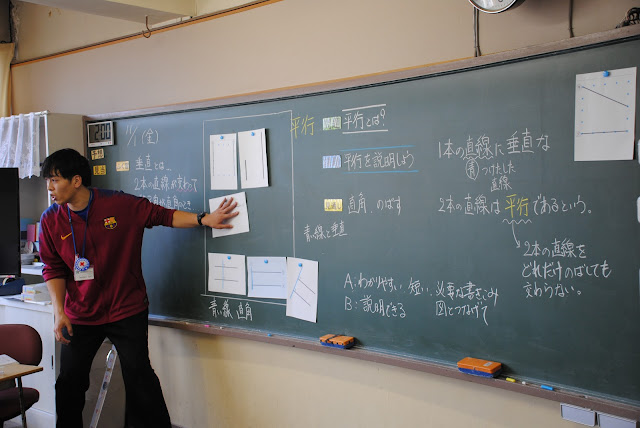 11/1(金)
垂直とは、
2本の直線が交わって
直角のとき
平行
平行とは?
平行を説明しよう
直角、のばす
青い線と垂直
青い線 直角
A:わかりやすい、短い、必要な書きこみ
B:説明できる 図とつなげて
1本の直線に垂直な
つけたした
直線
2本の直線は平行であるという。
2本の直線を
どれだけのばしても
交わらない。